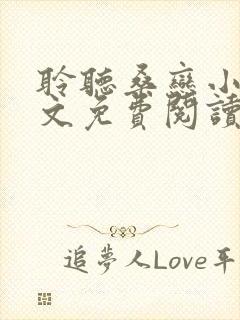 聆聽桑戀小
文免費閱讀
追夢人Love平